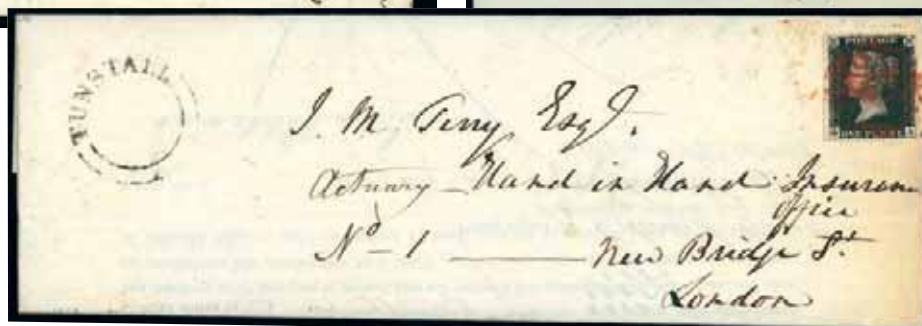 TUNSTALL
POSTAGE
ONE PENNY
J. M. Terry Esqr.
Actuary - Hand in Hand Insuran
office
No 1 ——— New Bridge St.
London